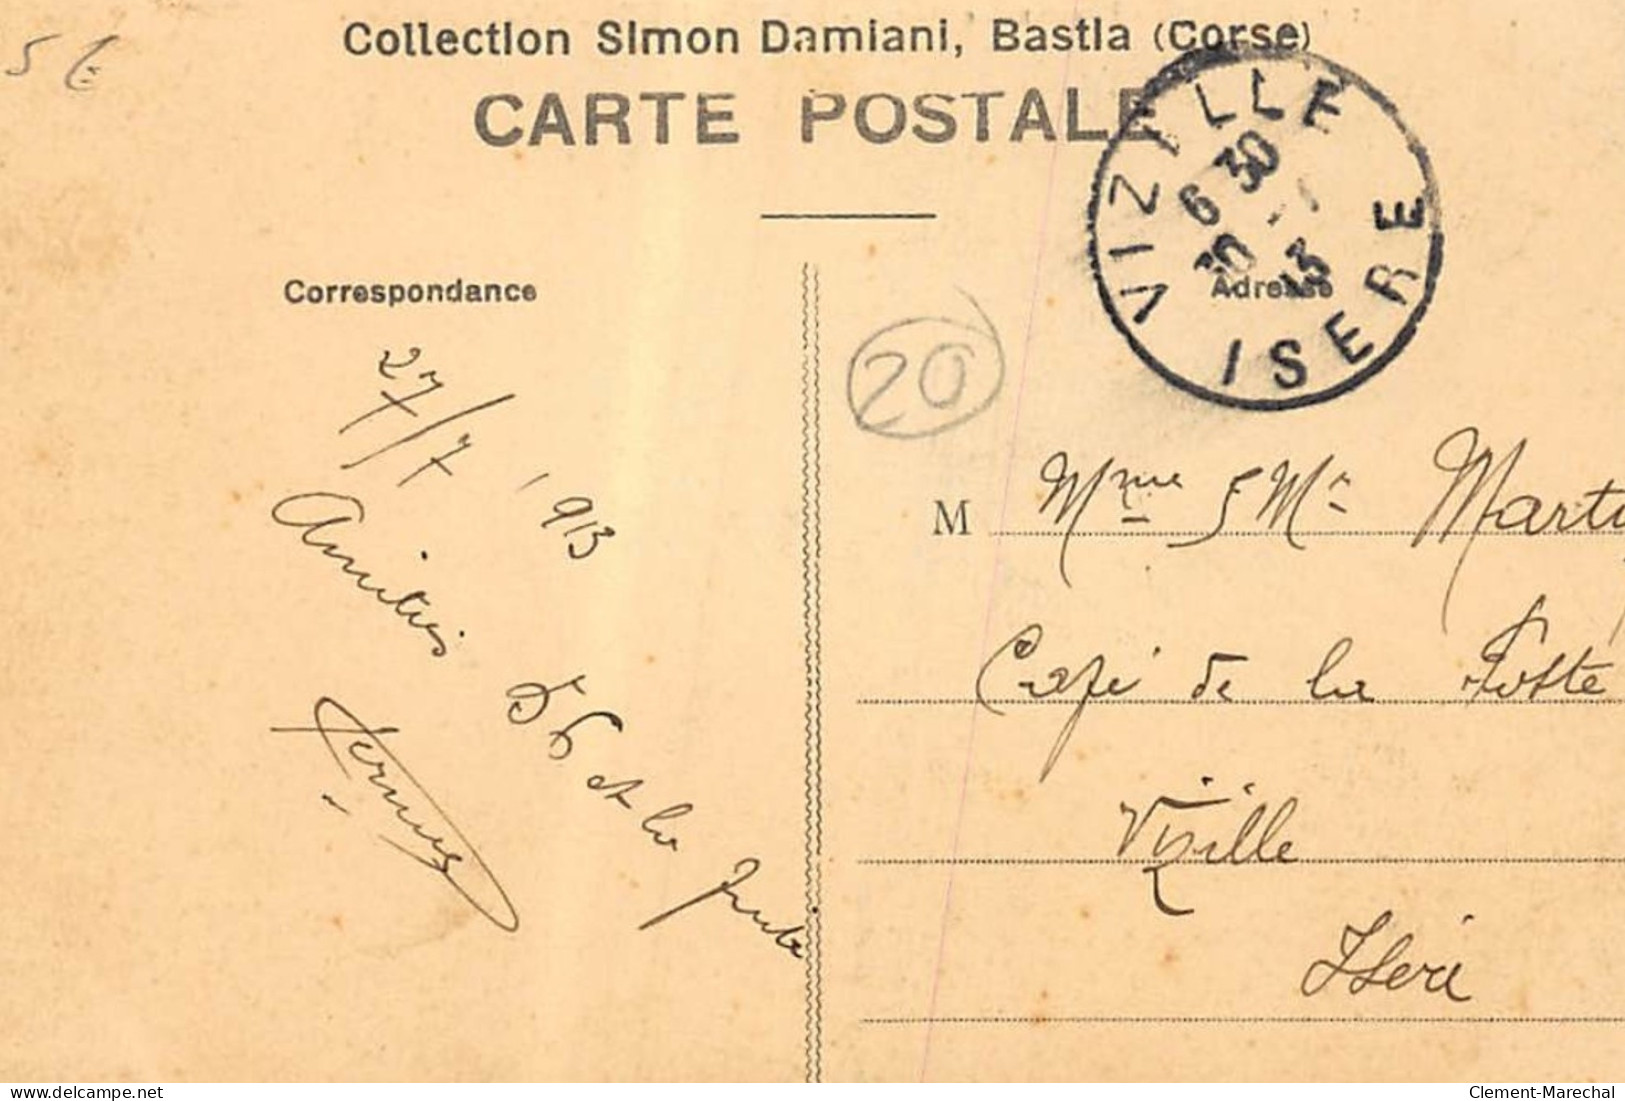 5 €
Collection Simon Damiani, Bastia (Corse)
CARTE POSTALE
VIZILLE
6 30
30 -7
13
ISERE
Correspondance
Adresse
20
27/7 '913
Amitiés
et la
M Mme Mr Marty
Café de la Poste
Vizille
Isère
delcampe.net
Clement-Marechal